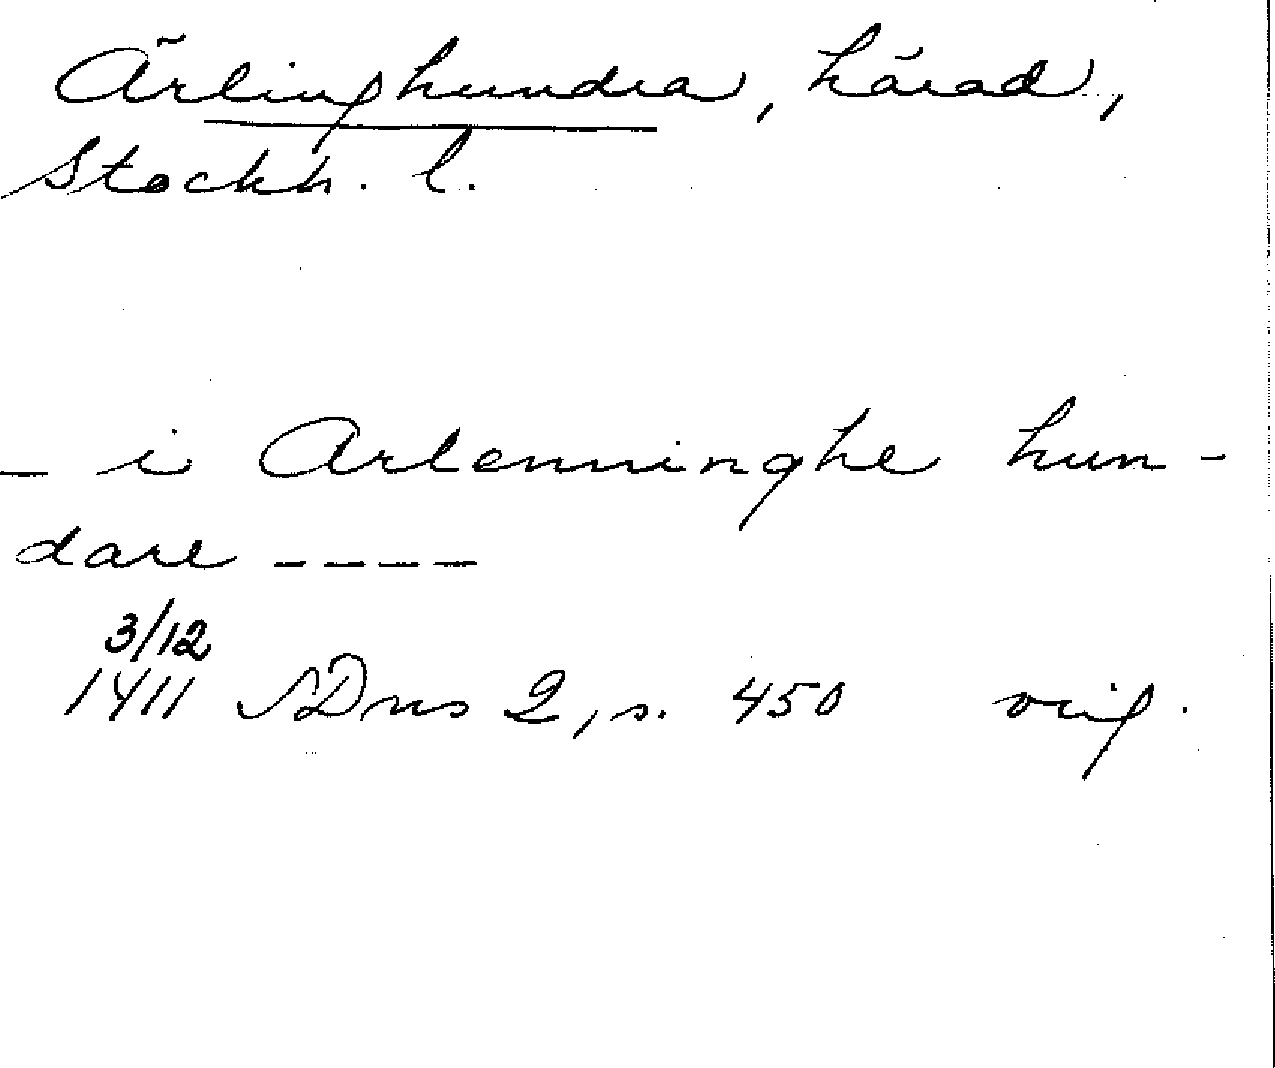 Ärlinghundra, härad,
Stockh. l.
- i Arlenninghe hun-
dare ----
3/12
1411 SDns 2, s. 450 orig.